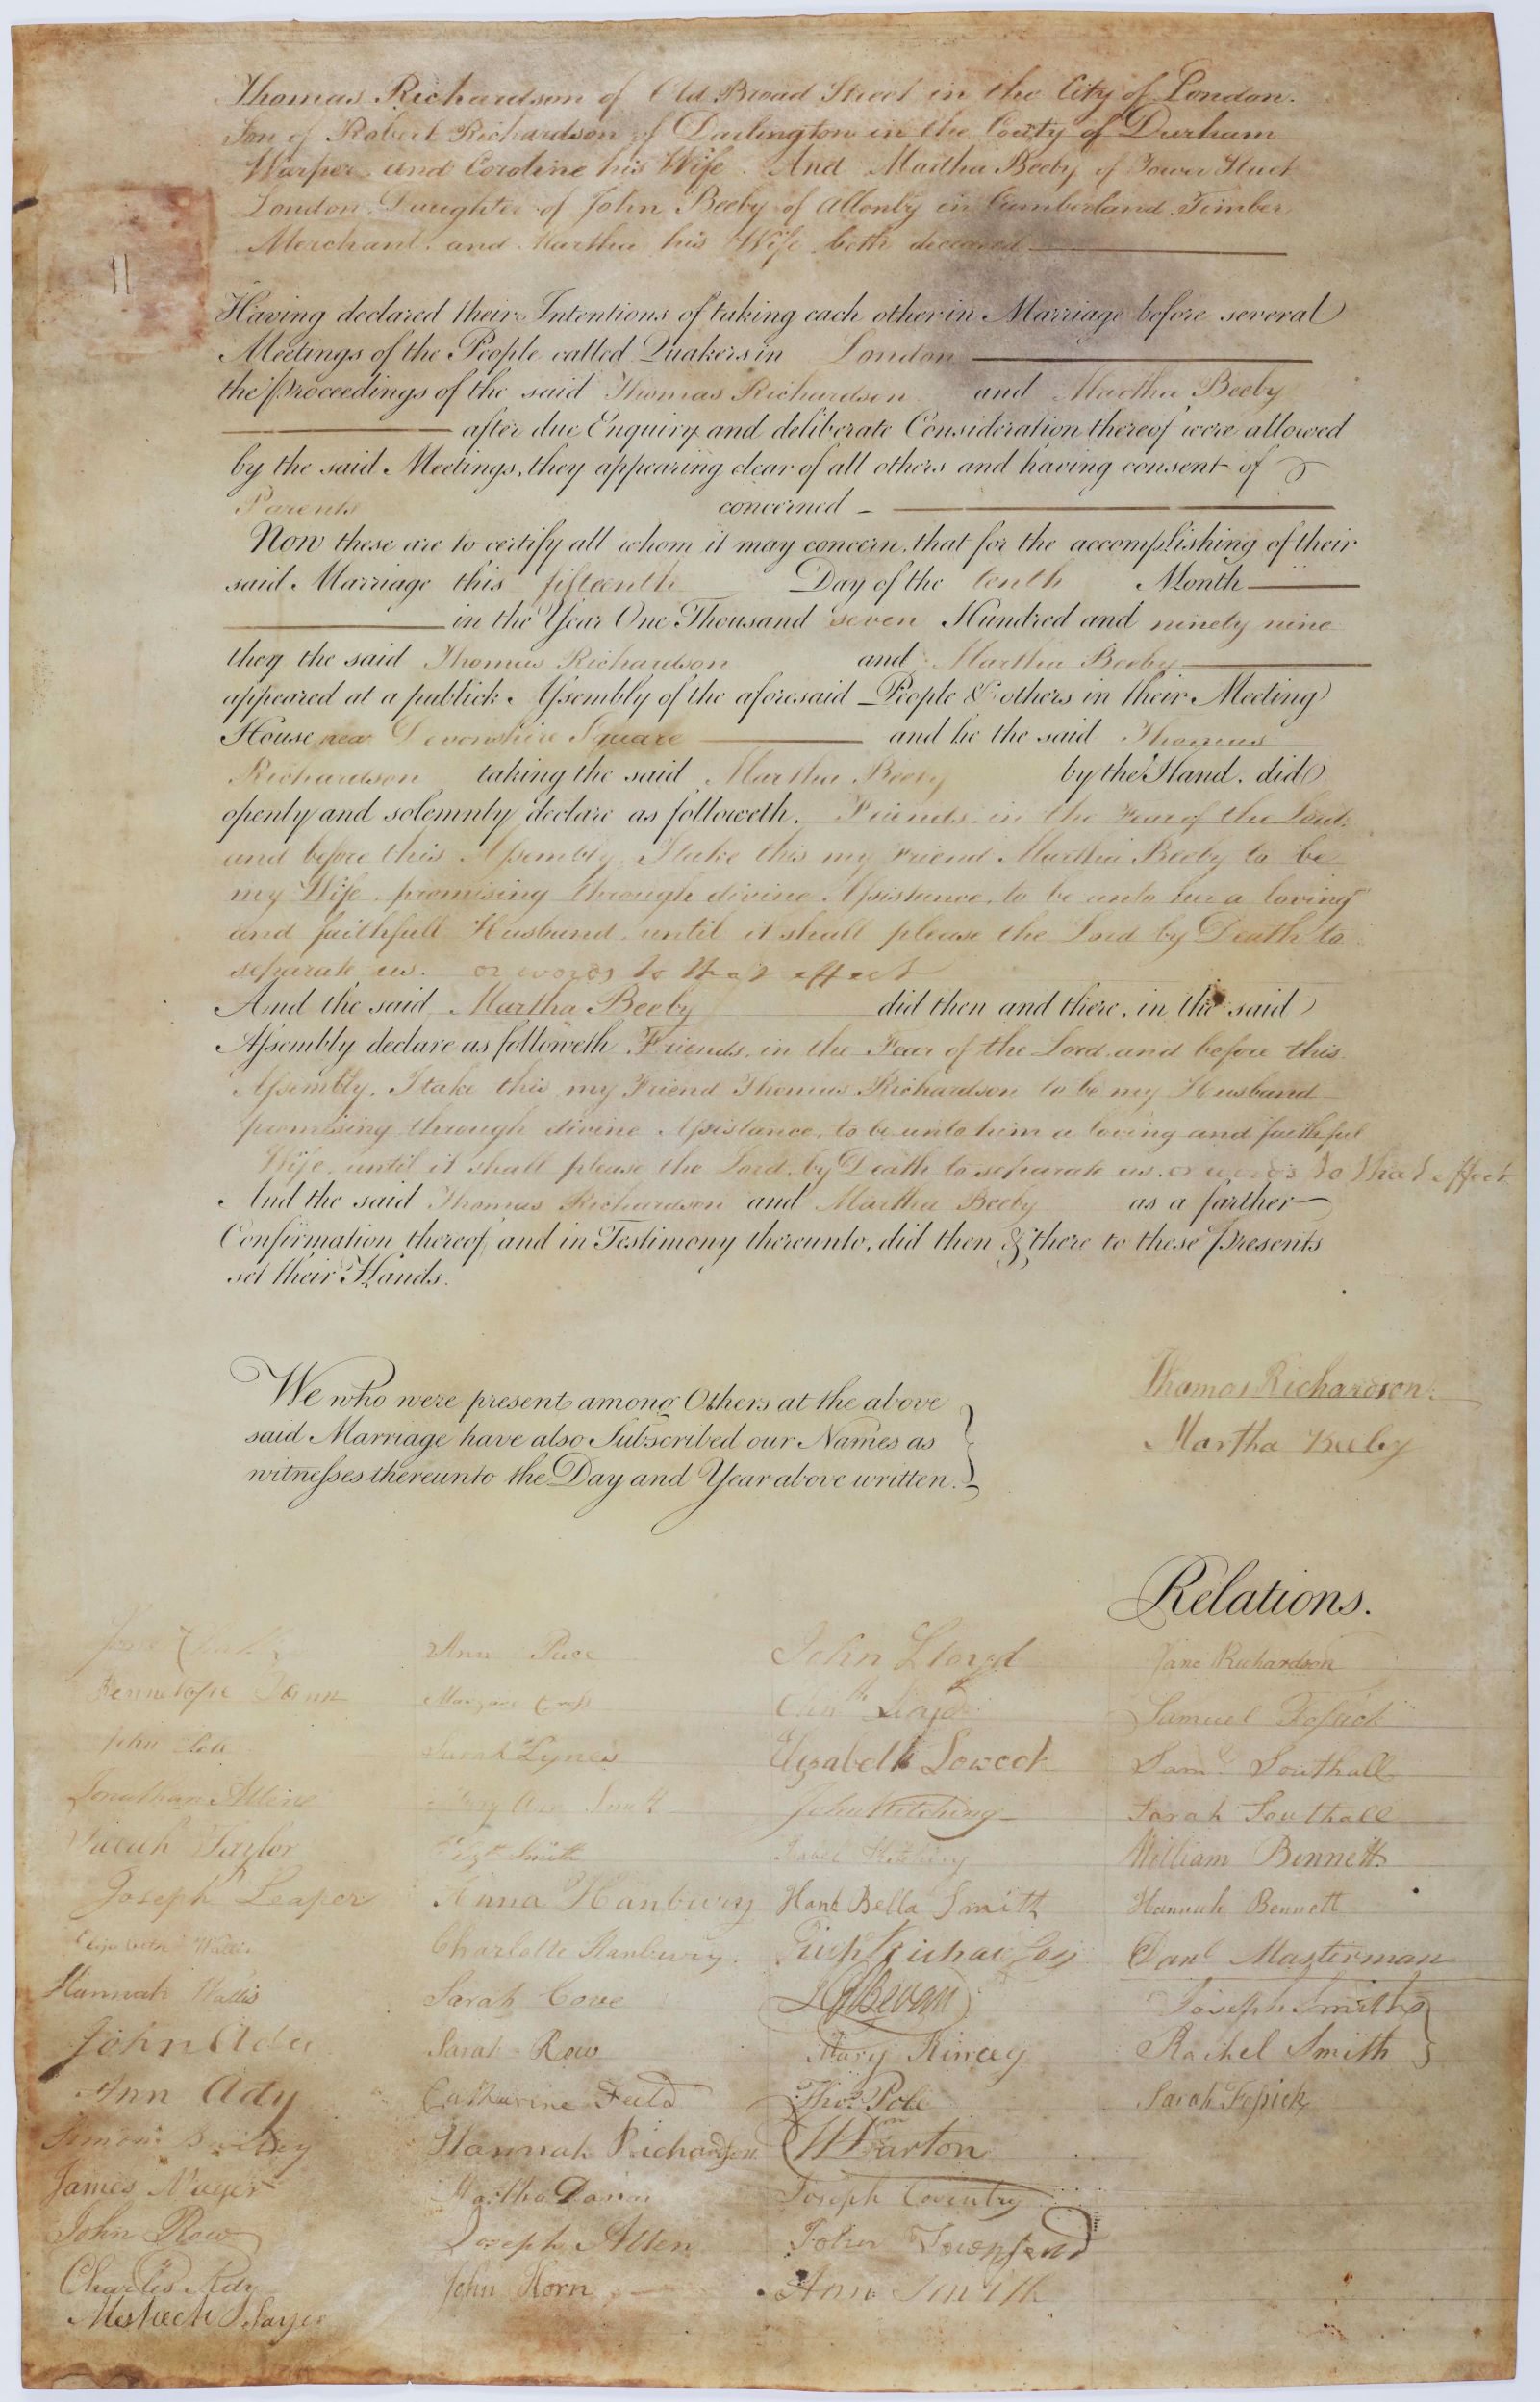 Thomas Richardson of Old Broad Street in the City of London.
Son of Robert Richardson of Darlington in the County of Durham
Warper and Caroline his Wife. And Martha Beeby of Tower Street
London Daughter of John Beeby of Allonby in Cumberland Timber
Merchant. and Martha his Wife both deceased
11
Having declared their Intentions of taking each other in Marriage before several
Meetings of the People called Quakers in London
the Proceedings of the said Thomas Richardson and Martha Beeby
after due Enquiry and deliberate Consideration thereof were allowed
by the said Meetings, they appearing clear of all others and having consent of
Parents concerned
Now these are to certify all whom it may concern, that for the accomplishing of their
said Marriage this fifteenth Day of the tenth Month
in the Year One Thousand seven Hundred and ninety nine
they the said Thomas Richardson and Martha Beeby
appeared at a publick Assembly of the aforesaid People & others in their Meeting
House near Devonshire Square and he the said Thomas
Richardson taking the said Martha Beeby by the Hand, did
openly and solemnly declare as followeth. Friends, in the Fear of the Lord,
and before this Assembly, I take this my Friend Martha Beeby to be
my Wife, promising through divine Assistance, to be unto her a loving
and faithfull Husband, until it shall please the Lord by Death to
separate us. or words to that effect
And the said Martha Beeby did then and there, in the said
Assembly declare as followeth Friends, in the Fear of the Lord, and before this
Assembly, I take this my Friend Thomas Richardson to be my Husband
promising through divine Assistance, to be unto him a loving and faithful
Wife, until it shall please the Lord, by Death to separate us. or words to that effect
And the said Thomas Richardson and Martha Beeby as a farther
Confirmation thereof, and in Testimony thereunto, did then & there to these Presents
set their Hands.
Thomas Richardson.
Martha Beeby
We who were present among Others at the above
said Marriage have also Subscribed our Names as
witnesses thereunto the Day and Year above written.
Relations.
Jane Richardson
Samuel Fossick
Sam.l Southall
Sarah Southall
William Bennett
Hannah Bennett
Dan.l Masterman
Joseph Smith
Rachel Smith
Sarah Fossick
John Lloyd
Lloyd
Elizabeth Lowcock
John Kitching
Kitching
Bella Smith
Bevan
Mary
Tho.s Pole
Joseph Coventry
John Townsend
Ann Smith
Ann Pace
Sarah Lynes
Mary Ann Smith
Eliz.th Smith
Anna Hanbury
Charlotte Hanbury.
Sarah Cove
Sarah Row
Catharine Feild
Hannah Richardson
Martha Dann
Joseph Allen
John Horn
Dann
John
Jonathan
Sarah Taylor
Joseph Leaper
Elizabeth Wallis
Hannah Wallis
John Ady
Ann Ady
Simon Bailey
James
John Row
Charles Ady